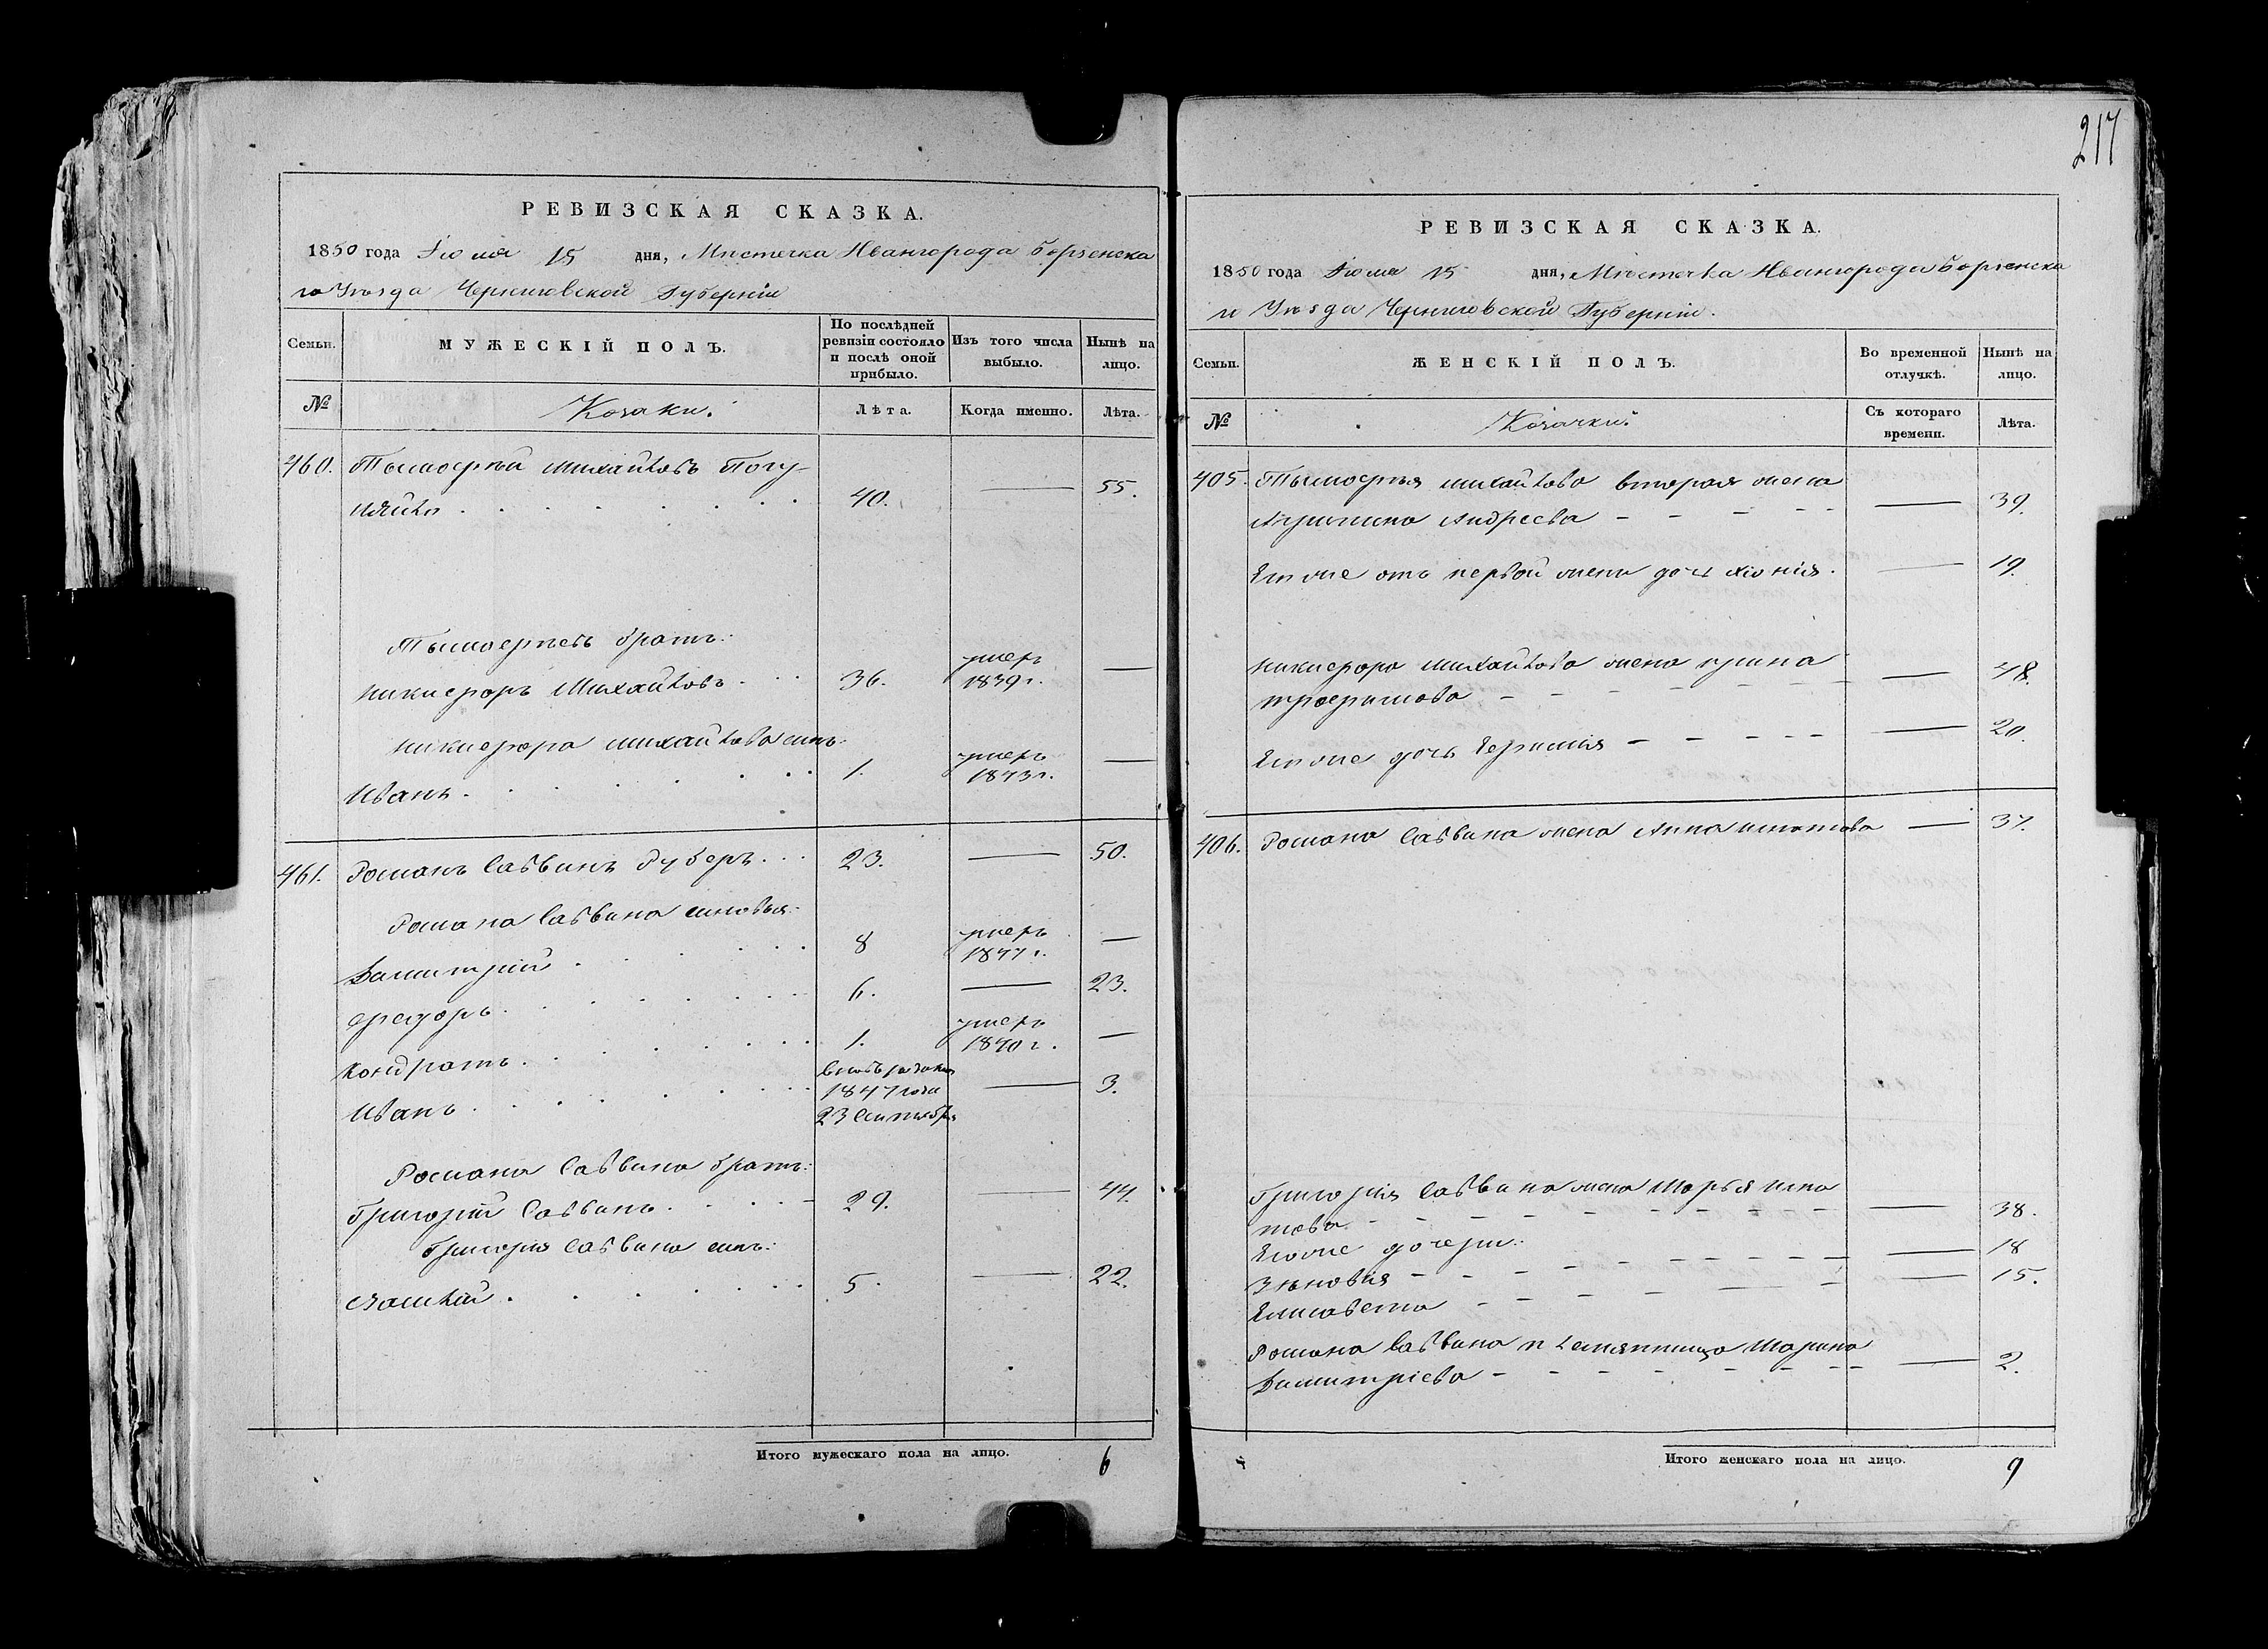 217
РЕВИЗСКАЯ СКАЗКА.
1850 года Іюля 15 дня, Мѣстечка Ивангорода Борзенска
го Уѣзда Черниговской Губерніи
Семьи.
МУЖЕСКІЙ ПОЛЪ.
По послѣдней ревизіи состояло и послѣ оной прибыло.
Изъ того числа выбыло.
Нынѣ на лицо.
№
Козаки.
Лѣта.
Когда именно.
Лѣта.
460. Тымофей Михайловъ
40. — 55.
Тымофеевъ братъ:
Никифоръ Михайловъ 36. умеръ 1839 г. —
Никифора Михайлова сынъ:
Иванъ 1. умеръ 1843 г. —
461. Романъ Саввинъ 23. — 50.
Романа Саввина сыновья:
Димитрій 8 умеръ —
Федоръ 6. — 23.
Кондратъ 1. умеръ 1840 г. —
Иванъ вновь рожден 1847 года 23 Сентября — 3.
Романа Саввина братъ:
Григорій Саввинъ 29. — 44.
Григорія Саввина сынъ:
5. — 22.
Итого мужескаго пола на лицо. 6
РЕВИЗСКАЯ СКАЗКА.
1850 года Іюля 15 дня, Мѣстечка Ивангорода Борзенска
го Уѣзда Черниговской Губерніи.
Семьи.
ЖЕНСКІЙ ПОЛЪ.
Во временной отлучкѣ.
Нынѣ на лицо.
№
Козачки.
Съ котораго времени.
Лѣта.
405. Тымофея Михайлова вторая жена
Андреева — 39.
Его же отъ первой жены дочь Хіонія. — 19.
Никифора Михайлова жена Ирина
Трофимова — 48.
Его же дочь Евфимія — 20.
406. Романа Саввина жена Анна Игнатова — 37.
Григорія Саввина жена Марья Игна
това — 38.
Его же дочери:
Зѣновія — 18
Елисавета — 15.
Романа Саввина племянница Марина
Димитріева — 2.
Итого женскаго пола на лицо. 9